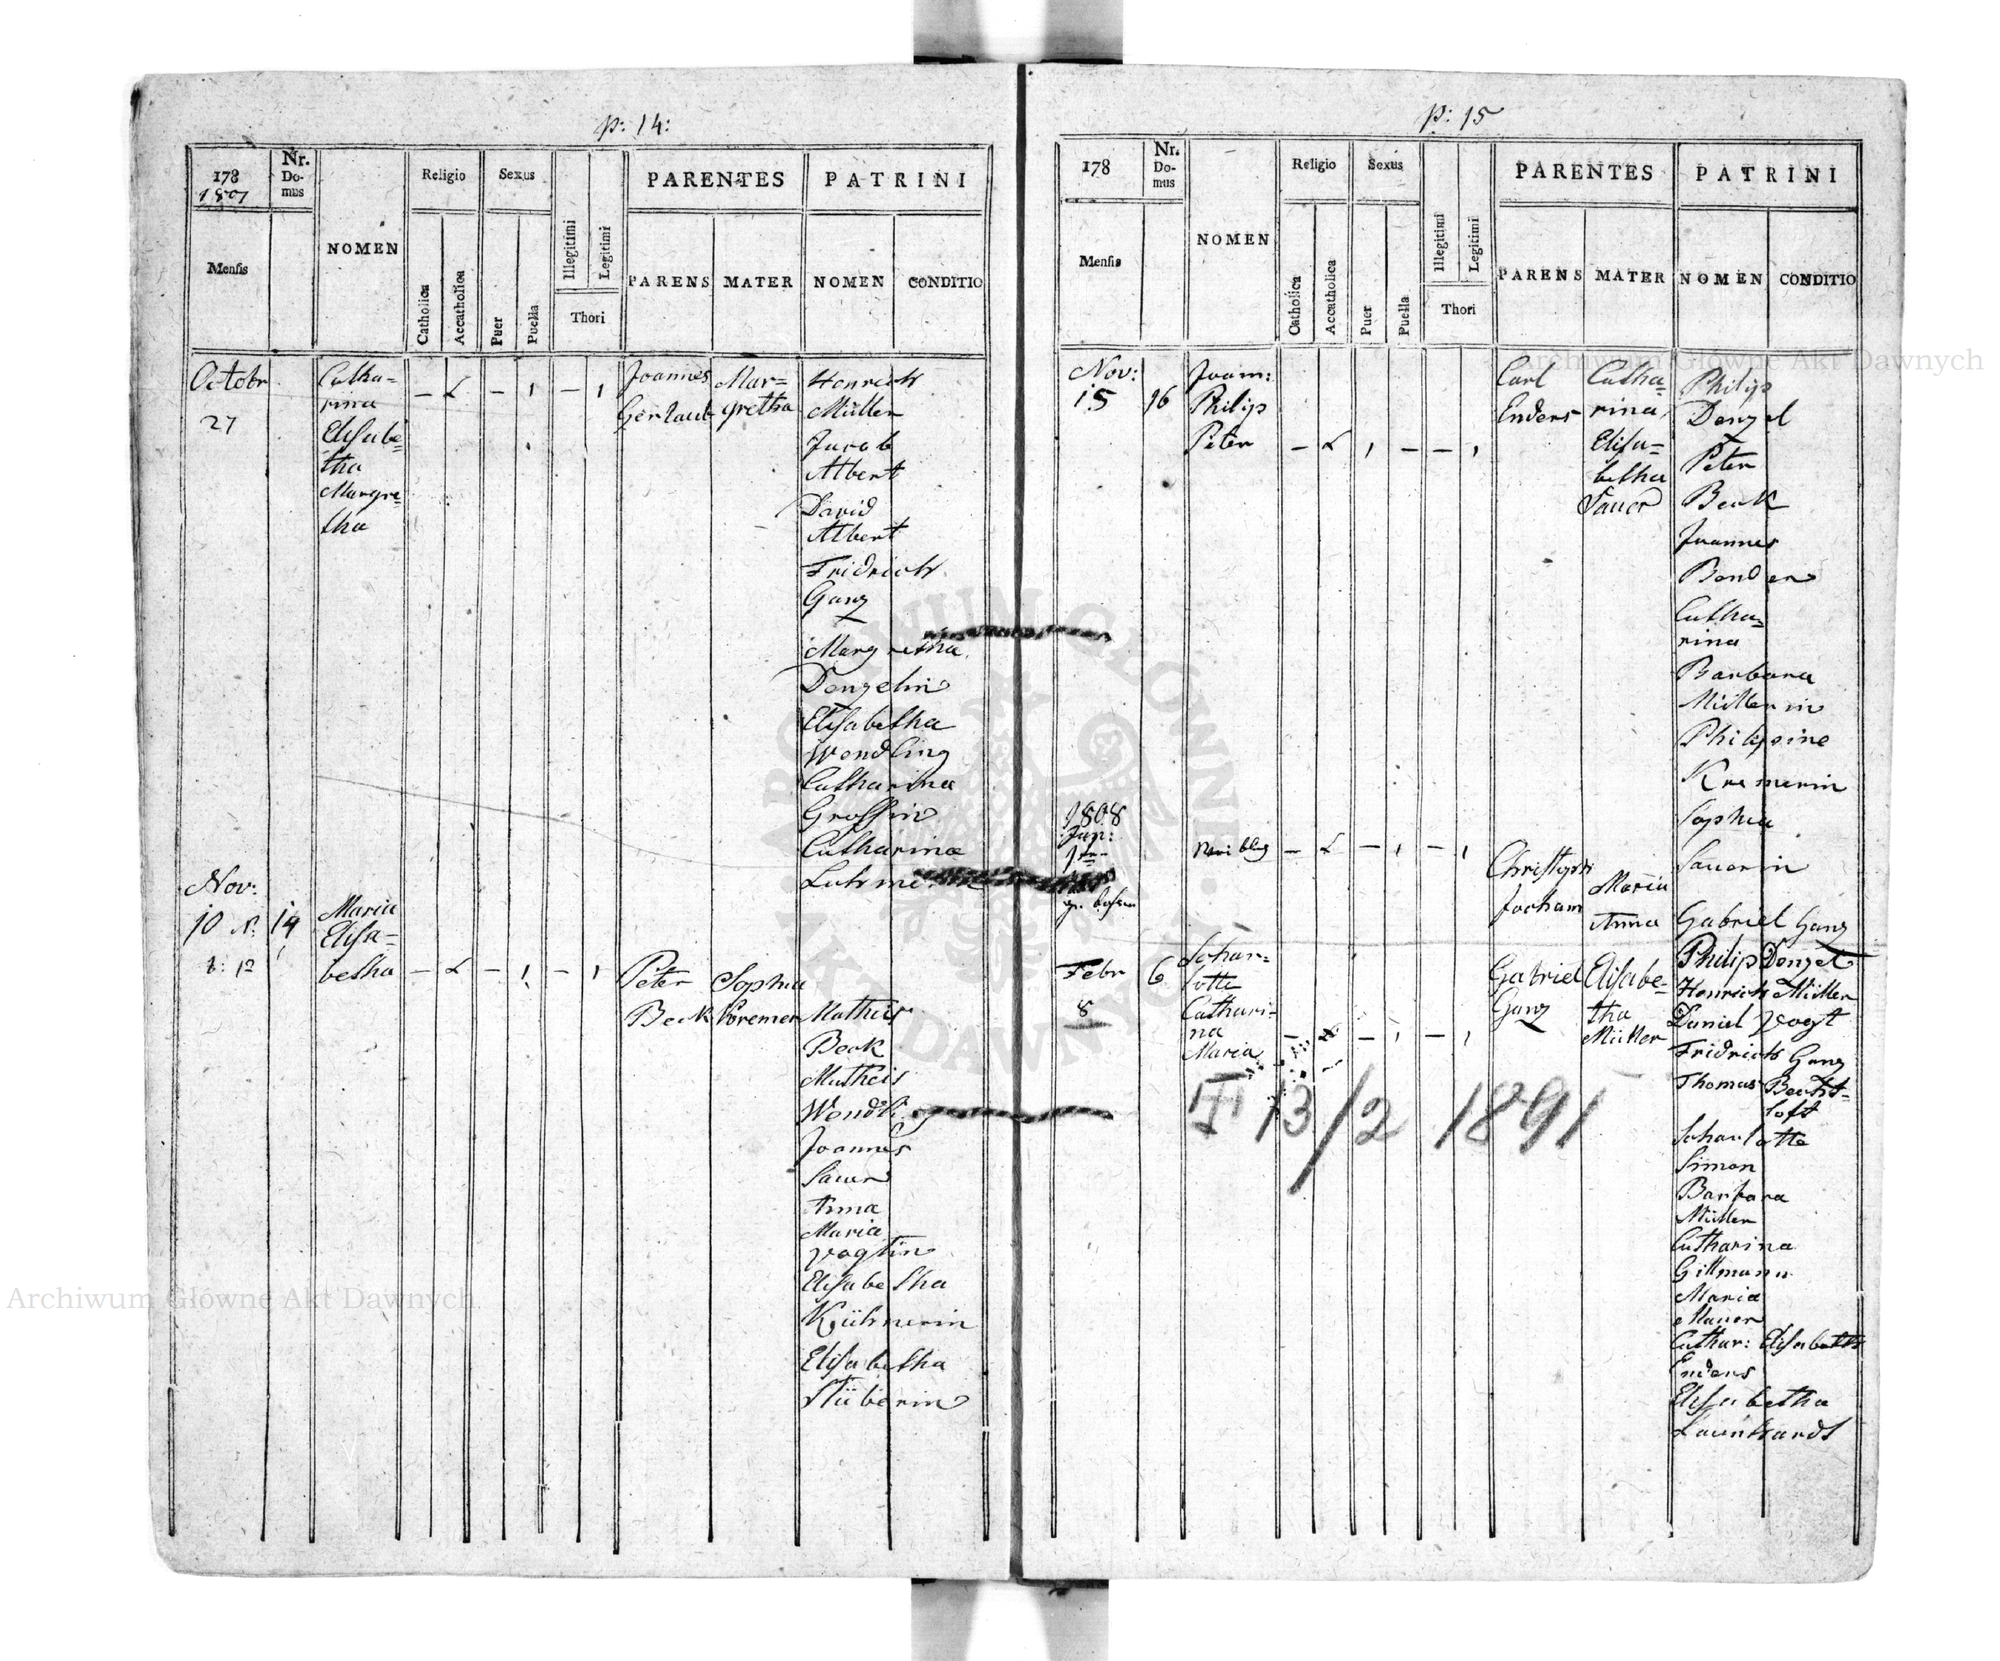 p: 14:
178
1807
Mensis
Nr.
Do-
mus
NOMEN
Religio
Catholica
Accatholica
Sexus
Puer
Puella
Illegitimi
Legitimi
Thori
PARENTES
PARENS
MATER
PATRINI
NOMEN
CONDITIO
Octobr
27
Catha=
rina
Elisabe=
tha
Margre=
tha
Joannes
Gerlaub
Mar=
gretha
Henrich
Müller
Jacob
Albert
David
Albert
Fridrich
Ganz
Margretha
Denzelin
Elisabetha
Wendling
Catharina
Groffin
Catharina
Nov:
10 N: 14
b: 12
Maria
Elisa=
betha
Peter
Beck
Sophia
Kremer
Matheis
Beck
Matheis
Joannes
Sauer
Anna
Maria
Vogtin
Elisabetha
Kühnerin
Elisabetha
Stüberin
p: 15
178
Mensis
Nr.
Do-
mus
NOMEN
Religio
Catholica
Accatholica
Sexus
Puer
Puella
Illegitimi
Legitimi
Thori
PARENTES
PARENS
MATER
PATRINI
NOMEN
CONDITIO
Nov:
15
16
Joan:
Philip
Peter
Carl
Enders
Catha=
rina
Elisa=
betha
Sauer
Philip
Denzel
Peter
Beck
Joannes
Bender
Catha=
rina
Barbara
Müllerin
Philipine
Kremerin
Sophia
Sauerin
1808
Jan:
Christoph
Jocham
Maria
Anna
Gabriel Ganz
Febr
8
6
Schar=
lotte
Cathari=
na
Maria
Gabriel
Ganz
Elisabe=
tha
Müller
Philip Denzel
Henrich Müller
Daniel Vogt
Fridrich Ganz
Thomas Becht=
loft
Scharlotte
Simon
Barbara
Müller
Catharina
Gittmann
Maria
Mauer
Cathar: Elisabetha
Enders
Elisabetha
Launhardt
13/2 1891
Archiwum Główne Akt Dawnych
Archiwum Główne Akt Dawnych
ARCHIWUM GŁÓWNE
AKT DAWNYCH